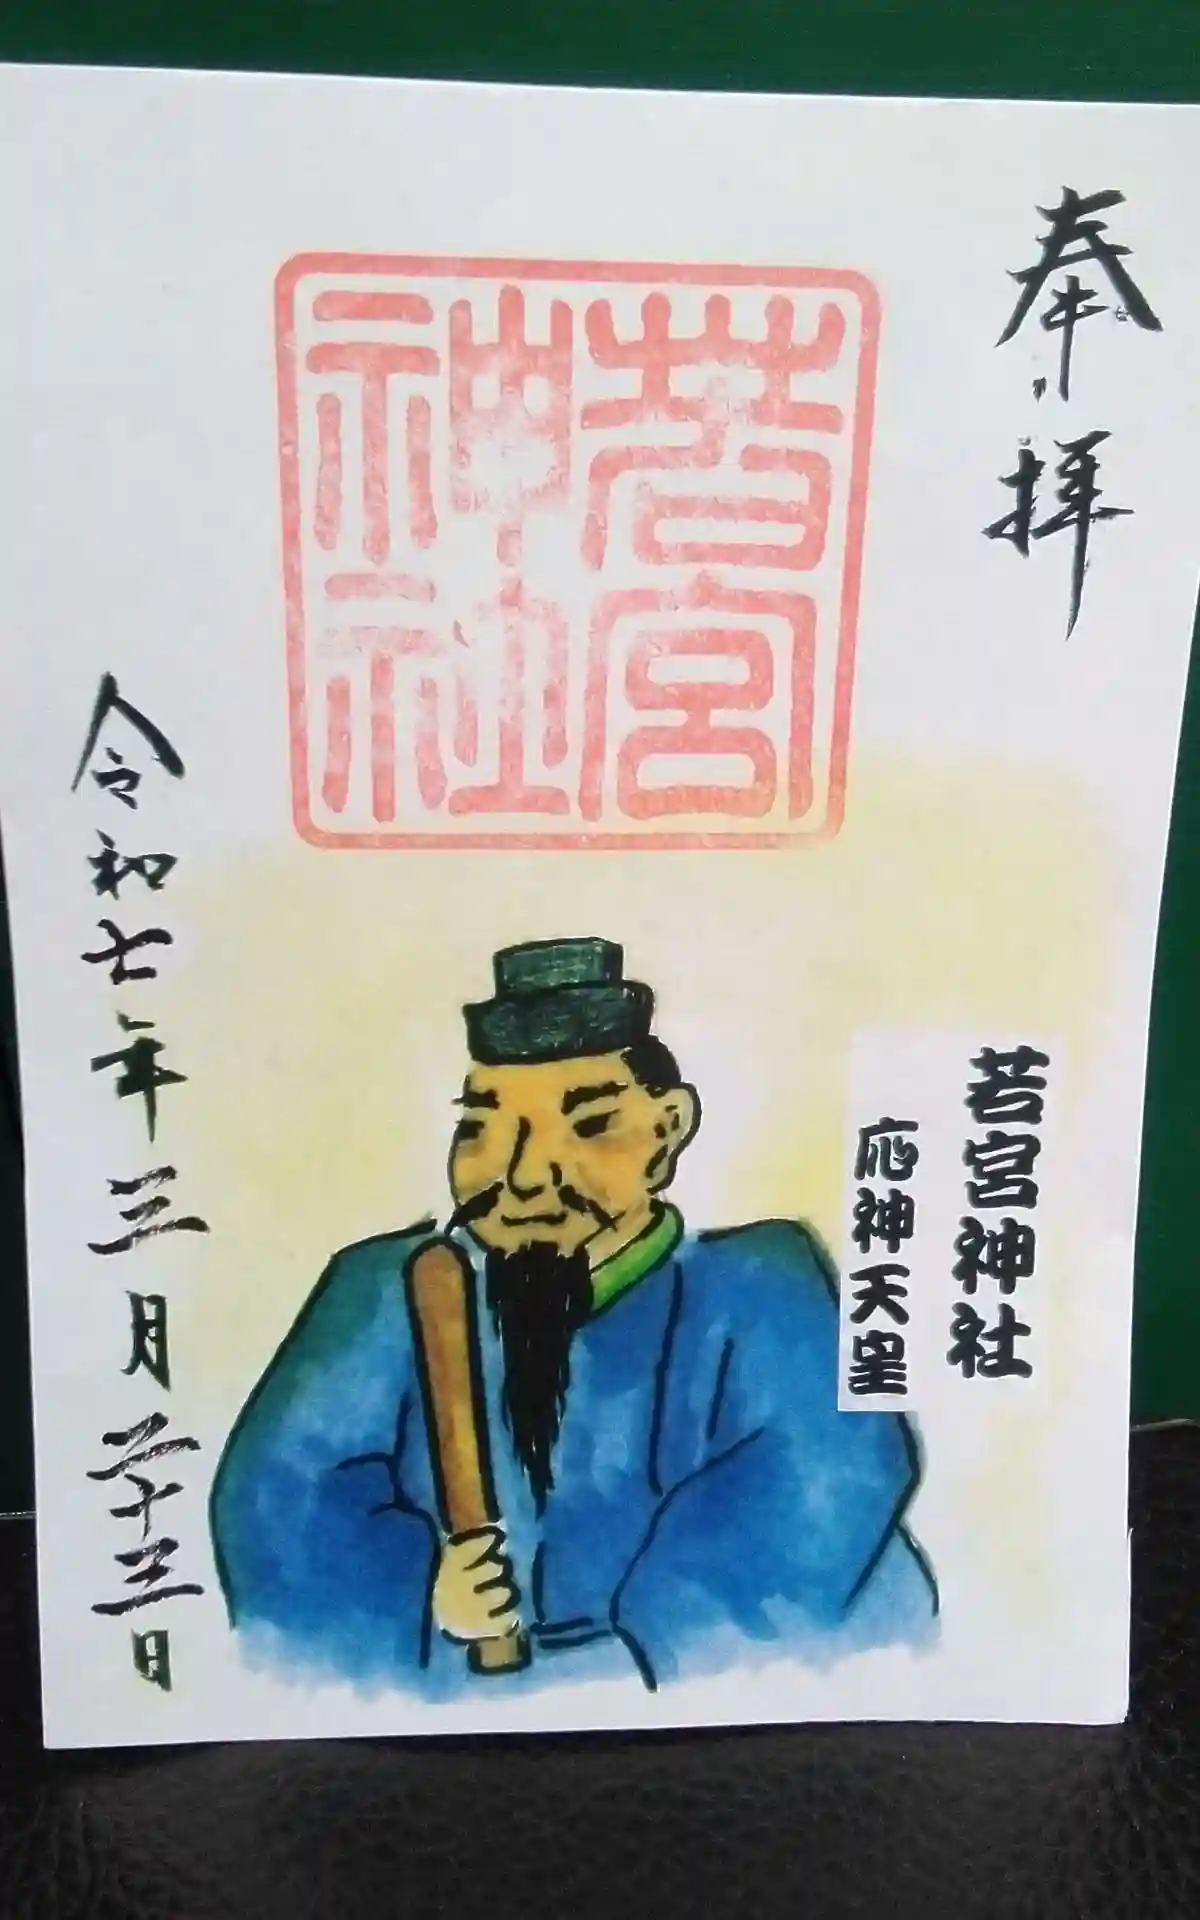 奉拝
若宮
神社
若宮神社
応神天皇
令和七年三月二十三日